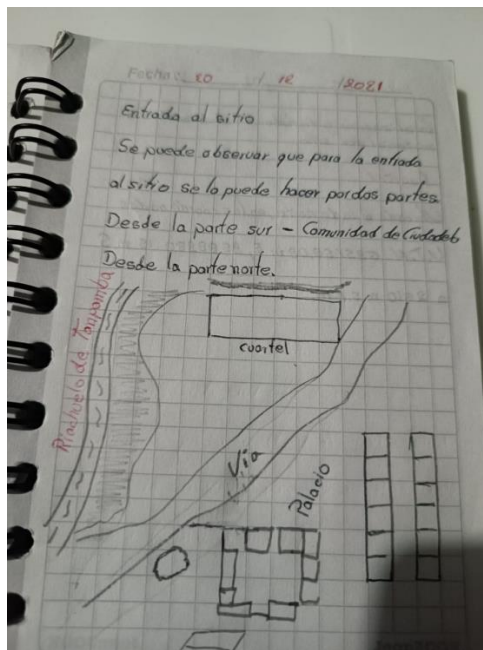 Fecha: 20 / 12 / 2021
Entrada al sitio
Se puede observar que para la entrada
al sitio se lo puede hacer por dos partes
Desde la parte sur - Comunidad de
Desde la parte norte.
Riachuelo de
cuartel
Vía
Palacio